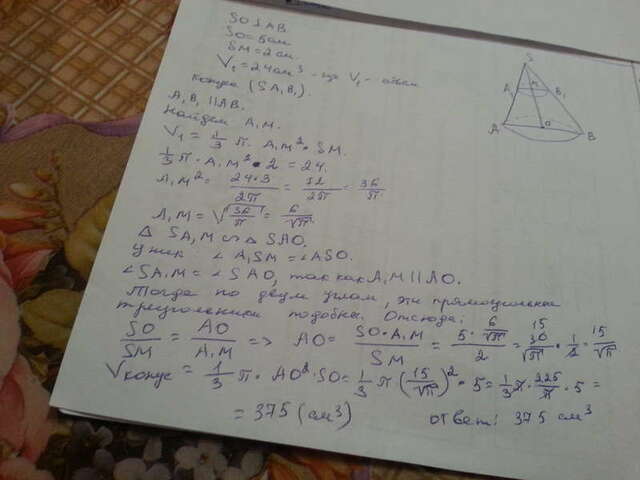 SO ⊥ AB.
SO = 5см
SM = 2 см.
V₁ = 24 см³ - где V₁ - объём
конуса (SA₁B₁).
A₁B₁ || AB.
Найдем A₁M.
V₁ = 1/3 π · A₁M² · SM.
1/3 π · A₁M² · 2 = 24.
A₁M² = 24·3/2π = 72/2π = 36/π
A₁M = √(36/π) = 6/√π.
Δ SA₁M ∾ Δ SAO.
У них: ∠A₁SM = ∠ASO.
∠SA₁M = ∠SAO, так как A₁M || AO.
Тогда по двум углам, эти прямоугольные
треугольники подобны. Отсюда:
SO/SM = AO/A₁M => AO = SO·A₁M/SM = 5·6/√π/2 = 30/√π · 1/2 = 15/√π
Vконус = 1/3 π · AO² · SO = 1/3 π (15/√π)² · 5 = 1/3 π · 225/π · 5 =
= 375 (см³) ответ: 375 см³
S
M
A₁ B₁
A O B